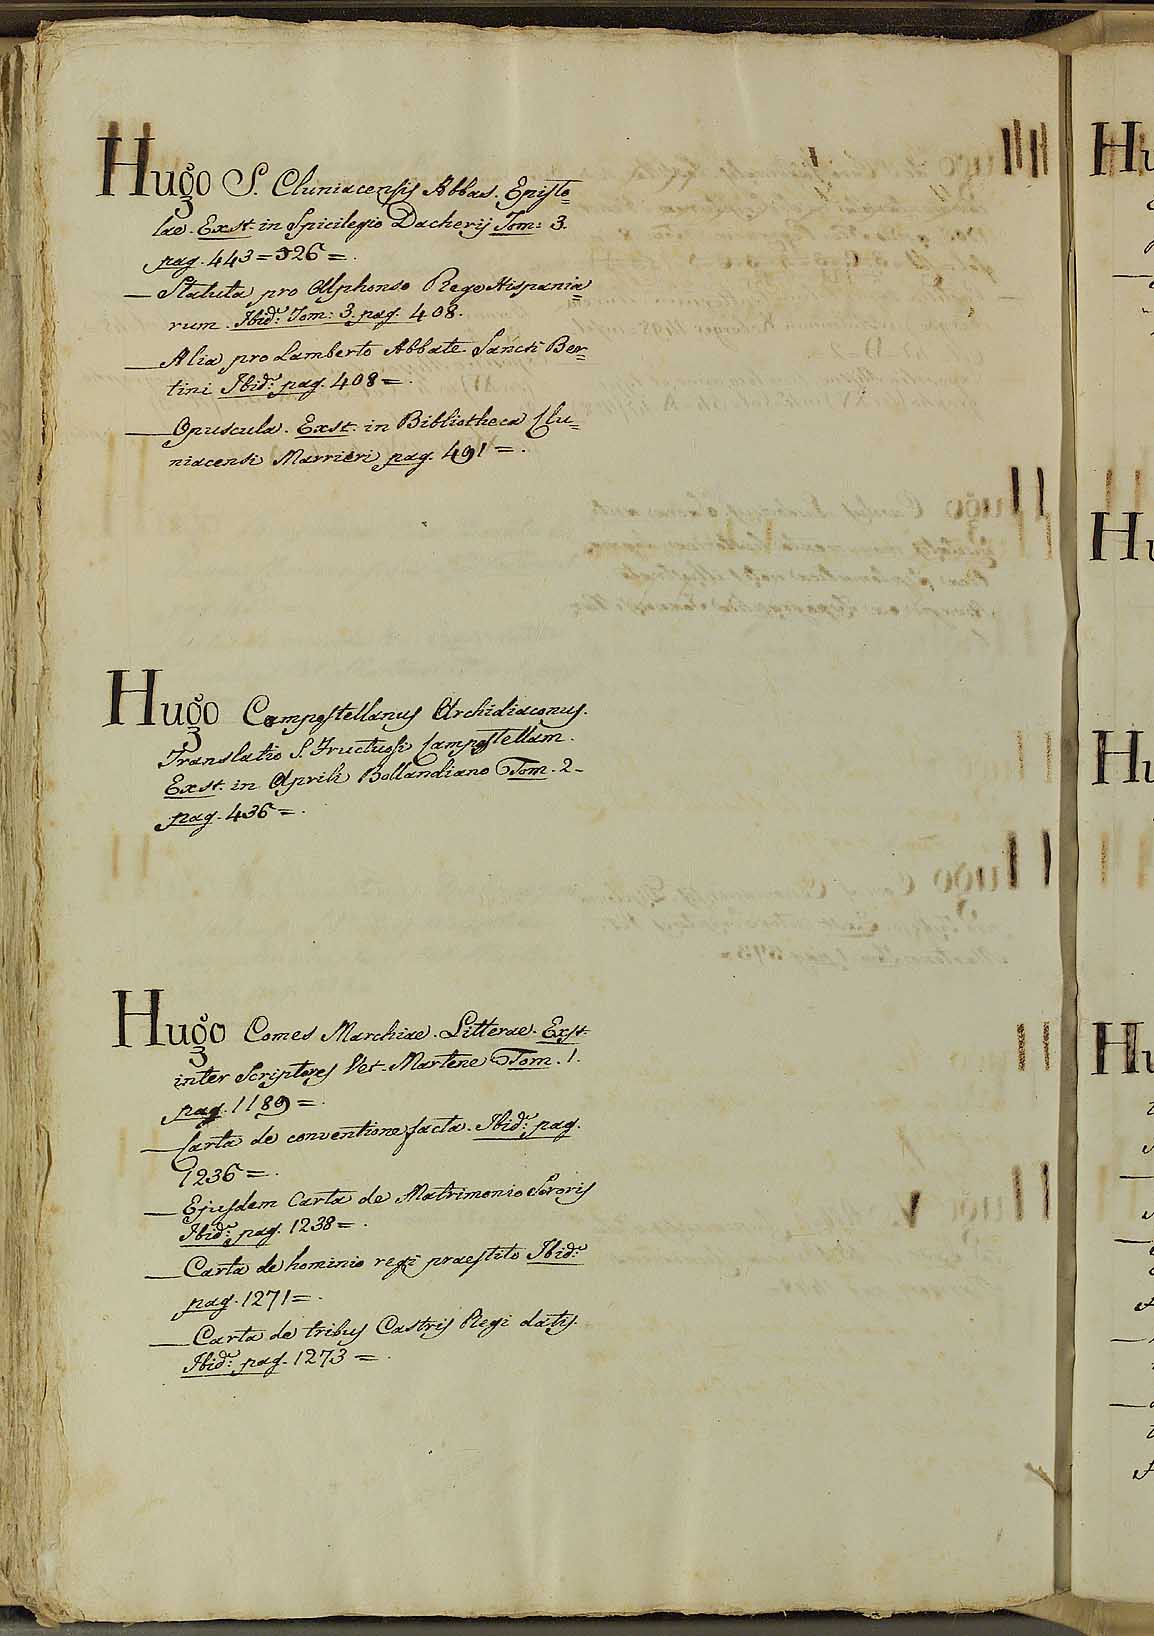 Hugo S. Cluniacensis Abbas. Episto=
lae. Exst. in Spicilegio Dacherij Tom: 3.
pag. 443=326=.
— Statuta pro Alphonso Rege Hispania=
rum. Ibid: Tom: 3. pag. 408.
— Alia pro Lamberto Abbate Sancti Ber=
tini Ibid: pag. 408=.
— Opuscula. Exst. in Bibliotheca Clu=
niacensi Marrieri pag. 491=.
Hugo Compostellanus Archidiaconus.
Translatio S. Fructuosi Campostellam.
Exst. in Aprili Bollandiano Tom. 2.
pag. 436=.
Hugo Comes Marchiae. Litterae. Exst.
inter Scriptores Vet. Martene Tom. 1.
pag. 1189=.
— Carta de conventione facta. Ibid: pag.
1236=.
— Ejusdem Carta de Matrimonio Sororis
Ibid: pag. 1238=.
— Carta de hominio regi praestito Ibid:
pag. 1271=.
— Carta de tribus Castris Regi datis.
Ibid: pag. 1273=.
Hu
Hu
Hu
Hu